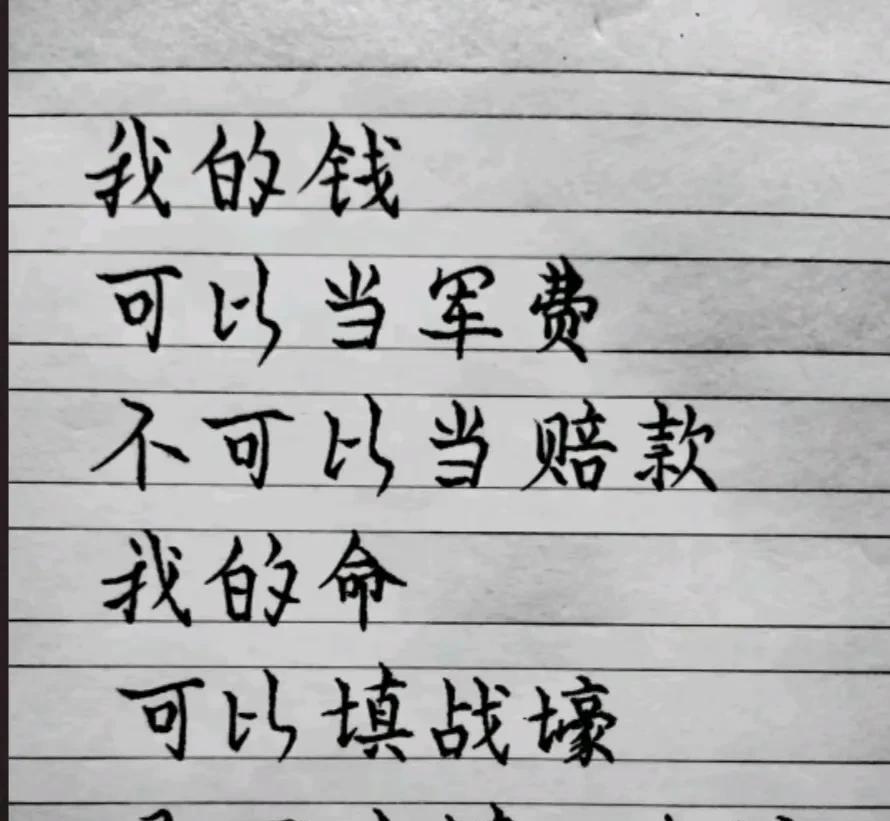 我的钱
可以当军费
不可以当赔款
我的命
可以填战壕